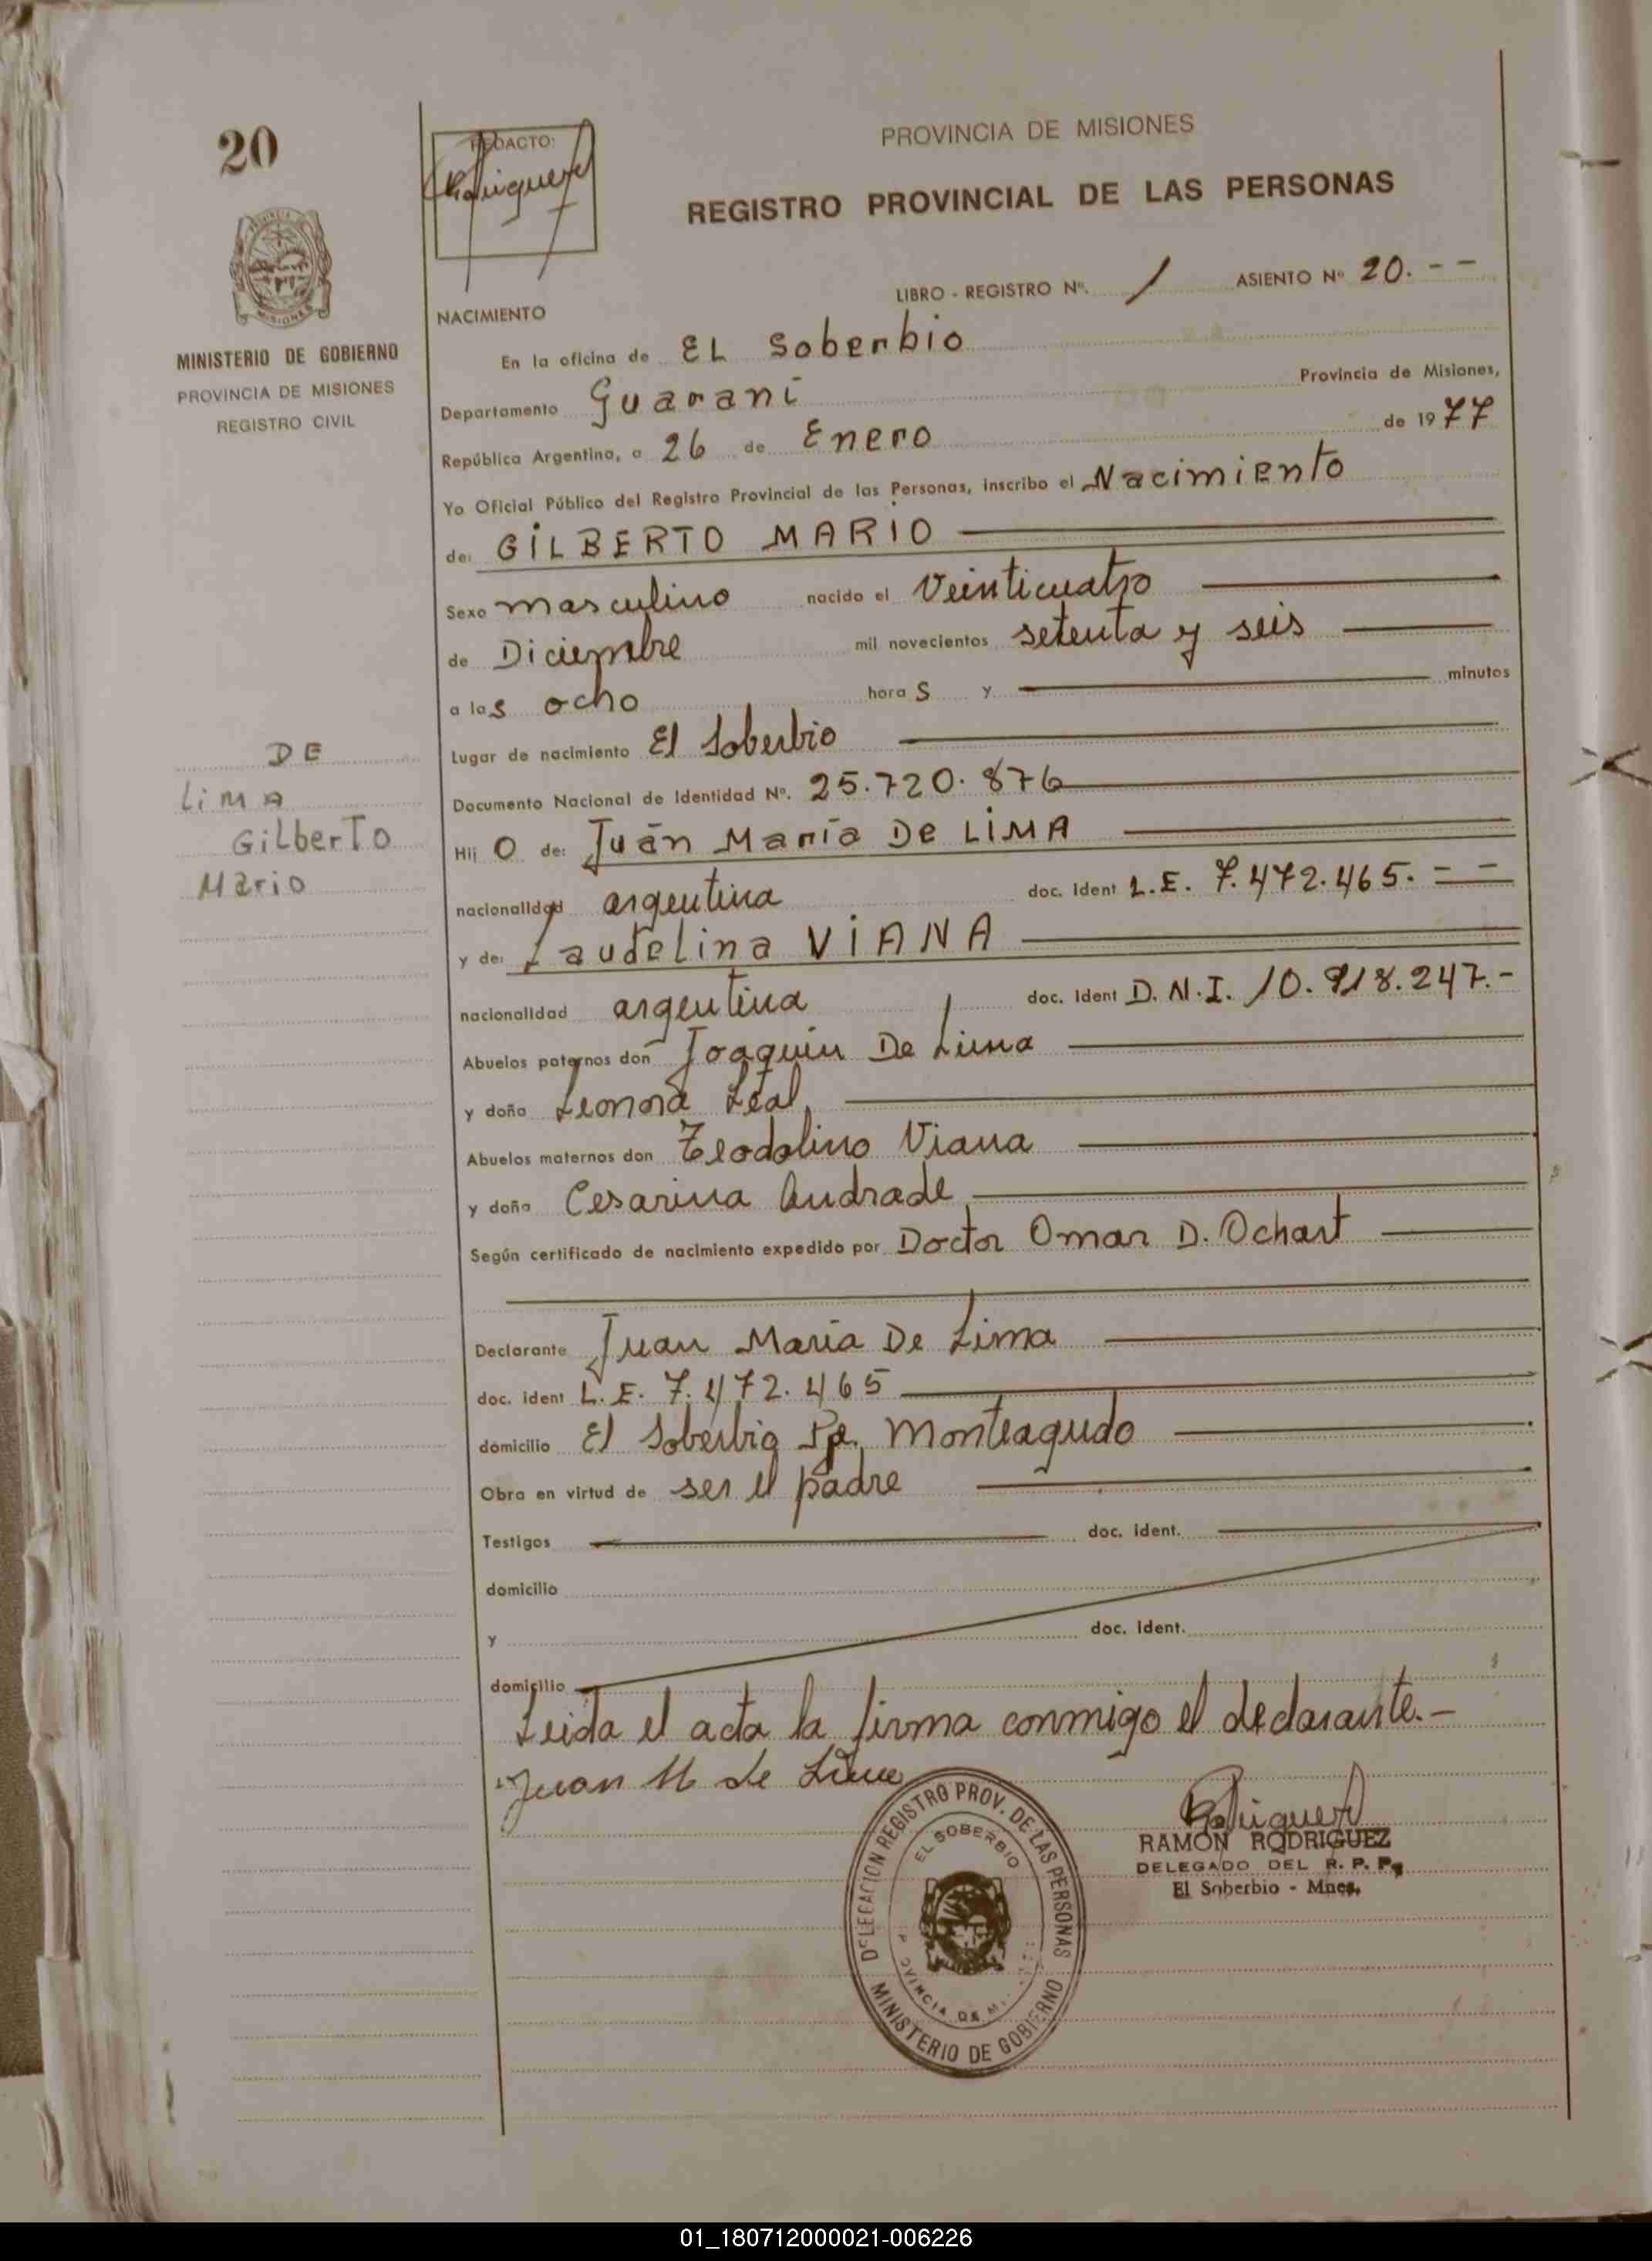 20
REDACTO:
PROVINCIA DE MISIONES
REGISTRO PROVINCIAL DE LAS PERSONAS
LIBRO - REGISTRO Nº. 1 ASIENTO Nº 20. - -
NACIMIENTO
MINISTERIO DE GOBIERNO
PROVINCIA DE MISIONES
REGISTRO CIVIL
En la oficina de EL Soberbio
Departamento Guaraní Provincia de Misiones,
República Argentina, a 26 de Enero de 1977
Yo Oficial Público del Registro Provincial de las Personas, inscribo el Nacimiento
de: GILBERTO MARIO
Sexo masculino nacido el Veinticuatro
de Diciembre mil novecientos setenta y seis
a las ocho horas y minutos
Lugar de nacimiento El Soberbio
Documento Nacional de Identidad Nº. 25.720.876
DE
LIMA
GilberTo
Mario
Hijo de: Juan María DE LIMA
nacionalidad argentina doc. ident L.E. 7.472.465. - -
y de: Laudelina VIANA
nacionalidad argentina doc. ident D.N.I. 10.918.247.-
Abuelos paternos don Joaquin De Lima
y doña Leonora Leal
Abuelos maternos don Teodolino Viana
y doña Cesarina Andrade
Según certificado de nacimiento expedido por Doctor Omar D. Ochart
Declarante Juan María De Lima
doc. ident L.E. 7.472.465
domicilio El Soberbio Monteagudo
Obra en virtud de ser el padre
Testigos doc. ident.
domicilio
y doc. ident.
domicilio
Leida el acta la firma conmigo el declarante.-
Juan M de Lima
DELEGACION REGISTRO PROV. DE LAS PERSONAS
EL SOBERBIO
PROVINCIA DE
MINISTERIO DE GOBIERNO
RAMON RODRIGUEZ
DELEGADO DEL R. P. P.
El Soberbio - Mnes.
01_180712000021-006226